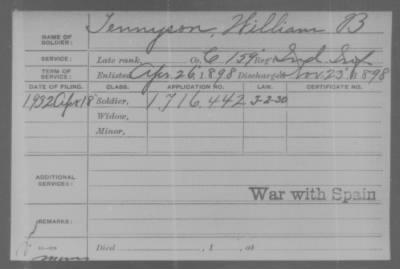 NAME OF SOLDIER: Tennyson, William B
SERVICE: Late rank, Co. C 159 Reg't Ind. Inf
TERM OF SERVICE: Enlisted Apr. 26, 1898 Discharged Nov. 23, 1898
DATE OF FILING. CLASS. APPLICATION NO. LAW. CERTIFICATE NO.
1932 Apr 18 Soldier, 1,716,442 3-2-30
Widow,
Minor,
ADDITIONAL SERVICES:
War with Spain
REMARKS:
Died , 1 , at